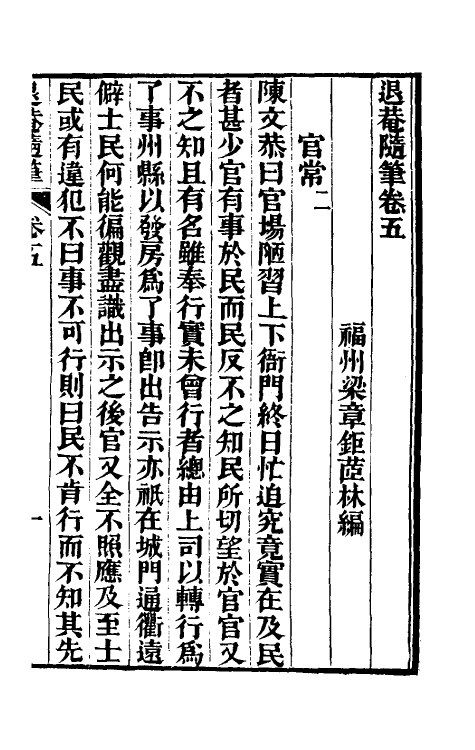 退菴隨筆卷五
福州梁章鉅茝林編
官常二
陳文恭曰官場陋習上下衙門終日忙迫究竟實在及民
者甚少官有事於民而民反不之知民所切望於官官又
不之知且有名雖奉行實未曾行者總由上司以轉行爲
了事州縣以發房爲了事卽出告示亦祇在城門通衢遠
僻士民何能徧觀盡識出示之後官又全不照應及至士
民或有違犯不曰事不可行則曰民不肯行而不知其先
退菴隨筆 卷五 一